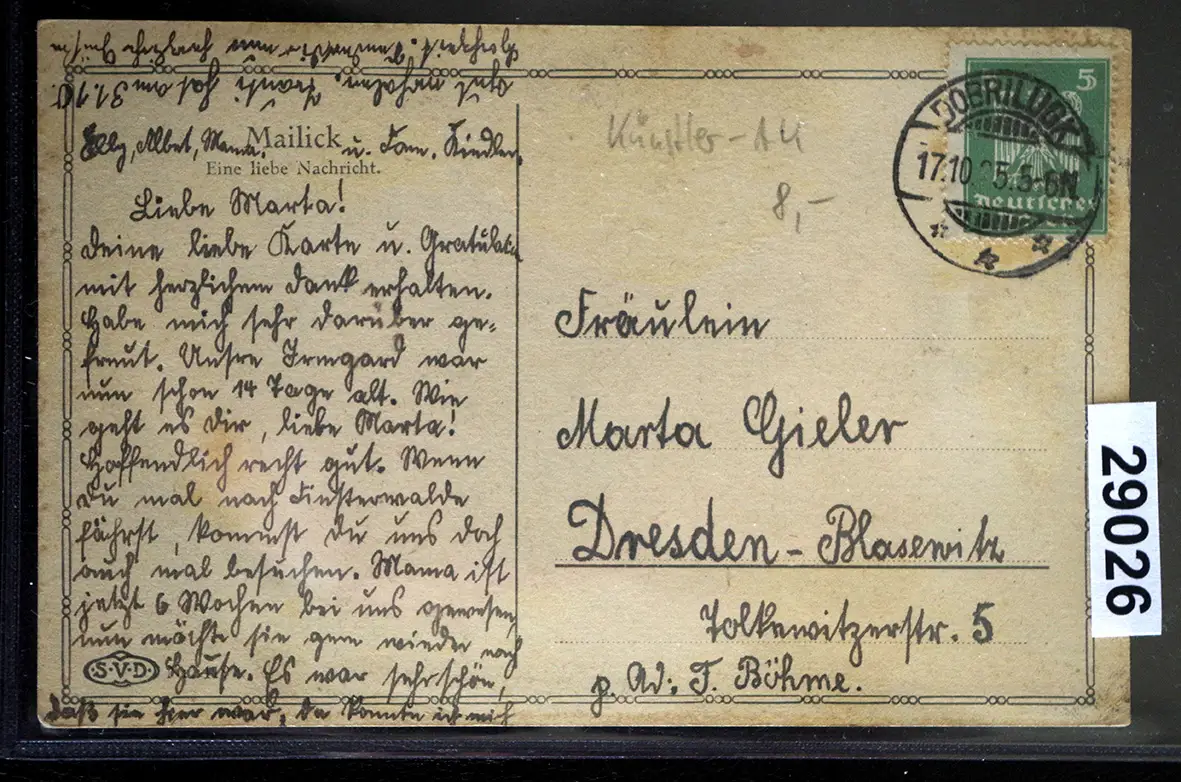 Mailick
Eine liebe Nachricht.
Liebe Marta!
Deine liebe Karte u. Gratulat.
mit herzlichem Dank erhalten.
Habe mich sehr darüber ge-
freut. Unsre Irmgard war
nun schon 14 Tage alt. Wie
geht es Dir, liebe Marta!
Hoffendlich recht gut. Wenn
Du mal nach Finsterwalde
fährst, kommst Du uns doch
auch mal besuchen. Mama ist
jetzt 6 Wochen bei uns gewesen,
nun möchte sie gern wieder nach
Hause. Es war sehr schön,
daß sie hier war, da konnte ich mich
gut
31.10.
herzlich
Elly, Albert, Mama. u.
S.V.D.
Künstler-AK
8,-
5
Deutsche
DOBRILUGK
17.10 25.5-6N
Fräulein
Marta Gieler
Dresden - Blasewitz
Tolkewitzerstr. 5
p. Ad: F. Böhme.
29026